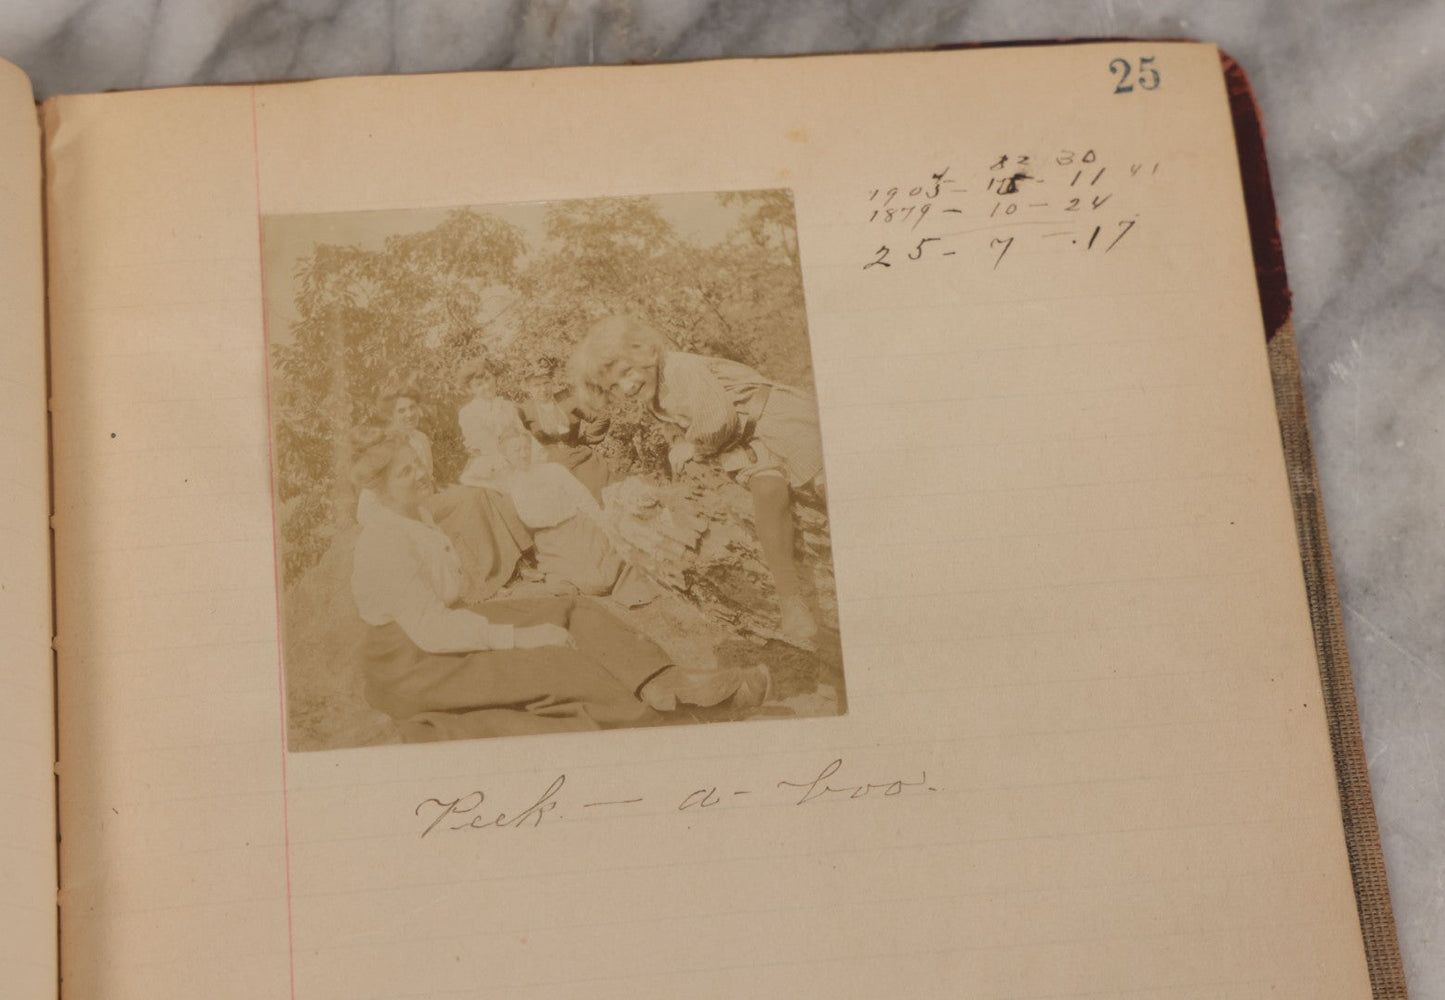 25
82 30
1905 - 15 - 11 41
1879 - 10 - 24
25 - 7 - .17
Peek - a - boo.